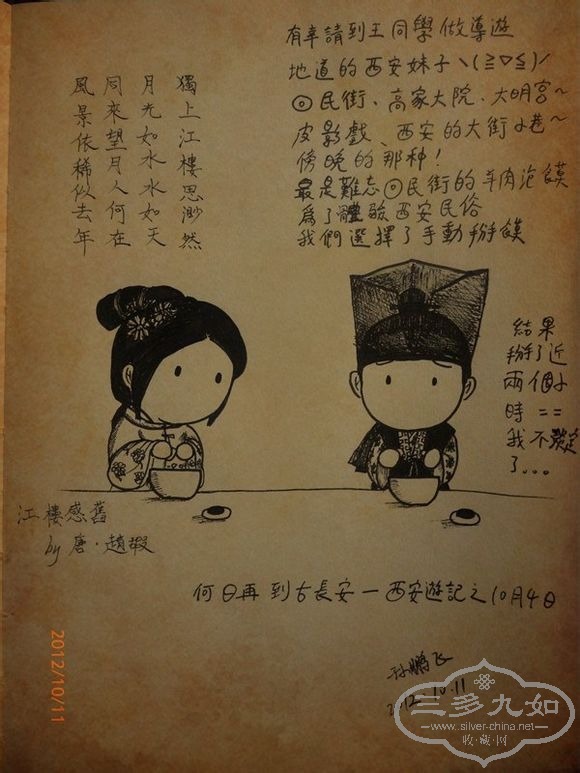 獨上江樓思渺然
月光如水水如天
同來望月人何在
風景依稀似去年
有幸請到王同學做導遊
地道的西安妹子ヽ(≧▽≦)/
回民街、高家大院、大明宮~
皮影戲、西安的大街小巷~
傍晚的那种!
最是難忘回民街的羊肉泡饃
為了體驗西安民俗
我們選擇了手動掰饃
結果
掰了近
兩個小
時 ==
我不淡定
了...
江樓感舊
by 唐·趙嘏
何日再到古長安—西安遊記之10月4日
孙鵬飞
2012.10.11
2012/10/11
三多九如
www.silver-china.net
收·藏·网